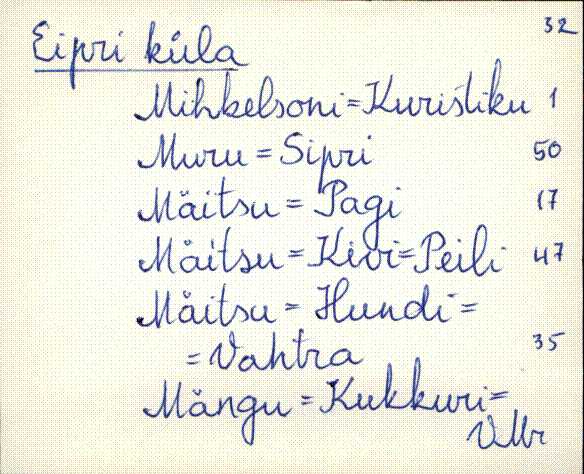 32
Eipri küla
Mihkelsoni=Kuristiku 1
Muru = Sipri 50
Mäitsu = Pagi 17
Mäitsu = Kivi=Peili 47
Mäitsu = Hundi =
= Vahtra 35
Mängu = Kukkuri=